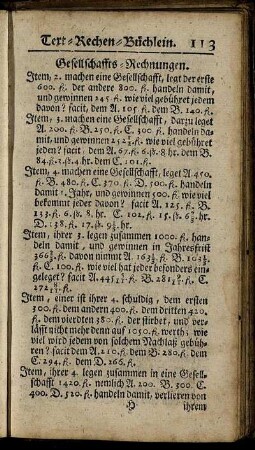 Text-Rechen-Büchlein. 113
Gesellschaffts-Rechnungen.
Item, 2. machen eine Gesellschafft, legt der erste
600. fl. der andere 800. fl. handeln damit,
und gewinnen 245. fl. wie viel gebühret jedem
davon? facit, dem A. 105. fl. dem B. 140. fl.
Item, 3. machen eine Gesellschafft, darzu leget
A. 200. fl. B. 250. fl. C. 300. fl. handeln da-
mit, und gewinnen 252 fl. wie viel gebühret
jeden? facit. dem A. 67. fl. 6. ß. 8. hr. dem B.
84. fl. 3. ß. 4. hr. dem C. 101. fl.
Item, 4. machen eine Gesellschafft, leget A. 450.
fl. B. 480. fl. C. 370. fl. D. 500. fl. handeln
damit 1. Jahr, und gewinnen 500. fl. wie viel
bekommt jeder davon? facit A. 125. fl. B.
133. fl. 6. ß. 8. hr. C. 102. fl. 15. ß. hr.
D. 138. fl. 17. ß. hr.
Item, ihrer 3. legen zusammen 1000. fl. handeln
damit, und gewinnen in Jahresfrist
366⅔. fl. davon nimmt A. 163⅓. fl. B. 103⅓.
fl. C. 100. fl. wie viel hat jeder besonders ein-
geleget? facit A. 445 fl. B. 281 fl. C.
272 fl.
Item, einer ist ihrer 4. schuldig, dem ersten
300. fl. dem andern 400. fl. dem dritten 420.
fl. dem vierdten 380. fl. der stirbet, und ver-
lässt nicht mehr denn auf 1050. fl. werth; wie
viel wird jedem von solchem Nachlaß gebüh-
ren? facit dem A. 210. fl. dem B. 280. fl. dem
C. 294. fl. dem D. 266. fl.
Item, ihrer 4. legen zusammen in eine Gesell-
schafft 1420. fl. nemlich A. 200. B. 300. C.
400. D. 520. fl. handeln damit, verlieren von
H ihrem